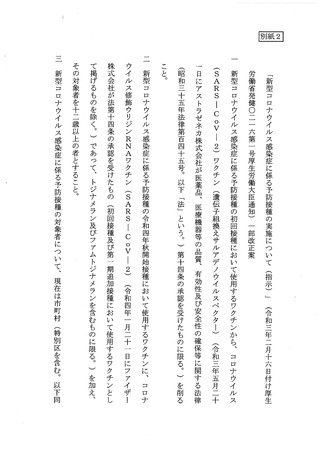 別紙2
「新型コロナウイルス感染症に係る予防接種の実施について（指示）」（令和三年二月十六日付け厚生
労働省発健〇二一六第一号厚生労働大臣通知）一部改正案
一　新型コロナウイルス感染症に係る予防接種の初回接種において使用するワクチンから、コロナウイルス
（SARS―CoV―2）ワクチン（遺伝子組換えサルアデノウイルスベクター）（令和三年五月二十
一日にアストラゼネカ株式会社が医薬品、医療機器等の品質、有効性及び安全性の確保等に関する法律
（昭和三十五年法律第百四十五号。以下「法」という。）第十四条の承認を受けたものに限る。）を削る
こと。
二　新型コロナウイルス感染症に係る予防接種の令和四年秋開始接種において使用するワクチンに、コロナ
ウイルス修飾ウリジンRNAワクチン（SARS―CoV―2）（令和四年一月二十一日にファイザー
株式会社が法第十四条の承認を受けたもの（初回接種及び第一期追加接種において使用するワクチンとし
て掲げるものを除く。）であって、トジナメラン及びファムトジナメランを含むものに限る。）を加え、
その対象者を十二歳以上の者とすること。
三　新型コロナウイルス感染症に係る予防接種の対象者について、現在は市町村（特別区を含む。以下同